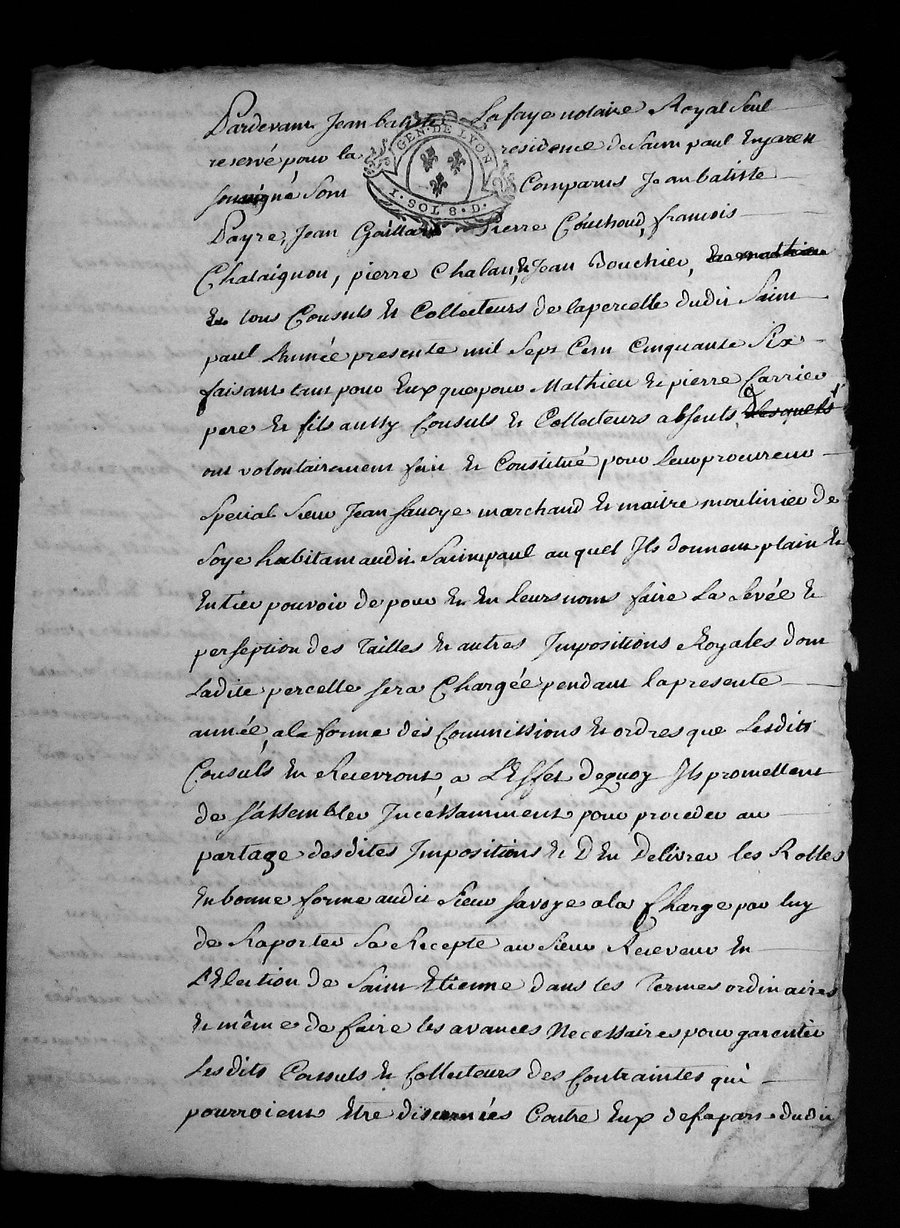 Pardevant Jean batiste Lafaye notaire Royal Seul
GEN. DE LYON
1. SOL 8. D.
reservé pour la residence de Saint paul Enjaren
soussigné Sont Comparus Jean batiste
Payre, Jean Gaillard Pierre Couchoud, francois
Chataignon, pierre Chalan, & Jean Bouchier, de mathieu
Et tous Consuls Et Collecteurs de laparcelle dudit Saint
paul Lannée presente mil Sept Cent Cinquante Six
faisant tant pour Eux que pour Mathieu Et pierre Carrier
pere Et fils aussy Consuls Et Collecteurs absents, Lesquels
ont volontairement fait Et Constitué pour Leur procureur
Special Sieur Jean Savoye marchand Et maitre moulinier de
Soye habitant audit Saint paul auquel Ils donnent plain Et
Entier pouvoir de pour Et En Leurs noms faire La Levée Et
perseption des Tailles Et autres Impositions Royales dont
Ladite percelle sera Chargée pendant lapresente
année, a la forme des Commissions Et ordres que Lesdits
Consuls En Recevront, a L'Effet dequoy Ils promettent
de s'assembler Incessamment pour proceder au
partage desdites Impositions Et D'En Delivrer les Rolles
En bonne forme audit Sieur Savoye a la Charge par luy
de Raporter Sa Recepte au Sieur Receveur En
L'Election de Saint Etienne dans les Termes ordinaires
Et même de faire les avances Necessaires pour garentir
Lesdits Consuls Et Collecteurs des Contraintes qui
pourroient Etre discernées Contre Eux desapart dudit